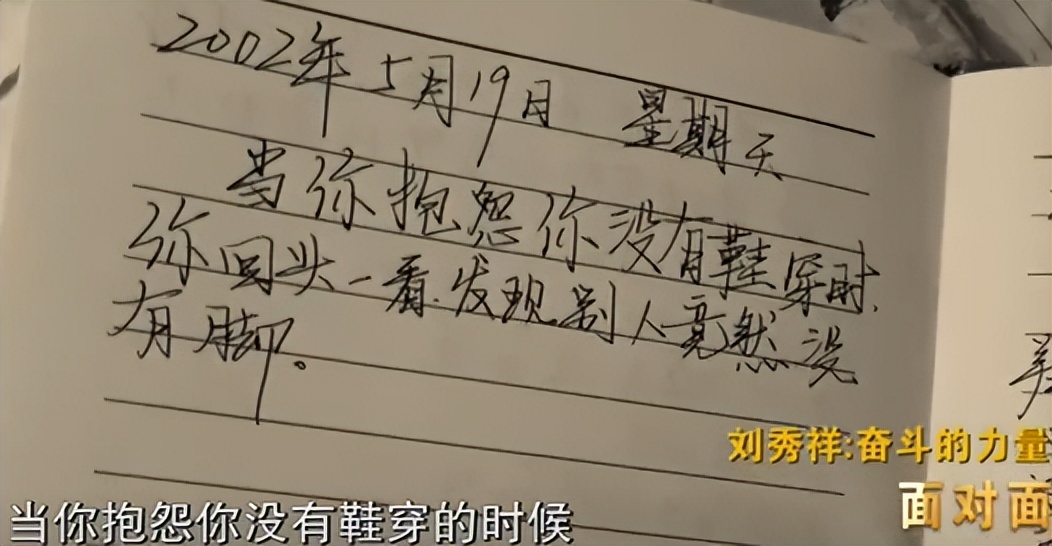 2002年5月19日 星期天
当你抱怨你没有鞋穿时,
你回头一看,发现别人竟然没
有脚。
刘秀祥:奋斗的力量
面对面
当你抱怨你没有鞋穿的时候